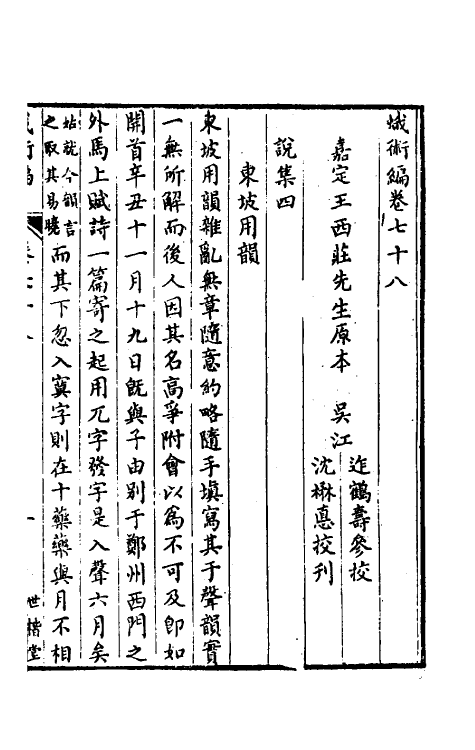 蛾術編卷七十八
嘉定王西莊先生原本　吳江
迮鶴壽參校
沈楙悳校刊
說集四
東坡用韻
東坡用韻雜亂無章隨意約略隨手塡寫其于聲韻實
一無所解而後人因其名高爭附會以爲不可及卽如
開首辛丑十一月十九日旣與子由別于鄭州西門之
外馬上賦詩一篇寄之起用兀字發字是入聲六月矣
姑就今韻言
之取其易曉
而其下忽入寞字則在十藥藥與月不相
世楷堂